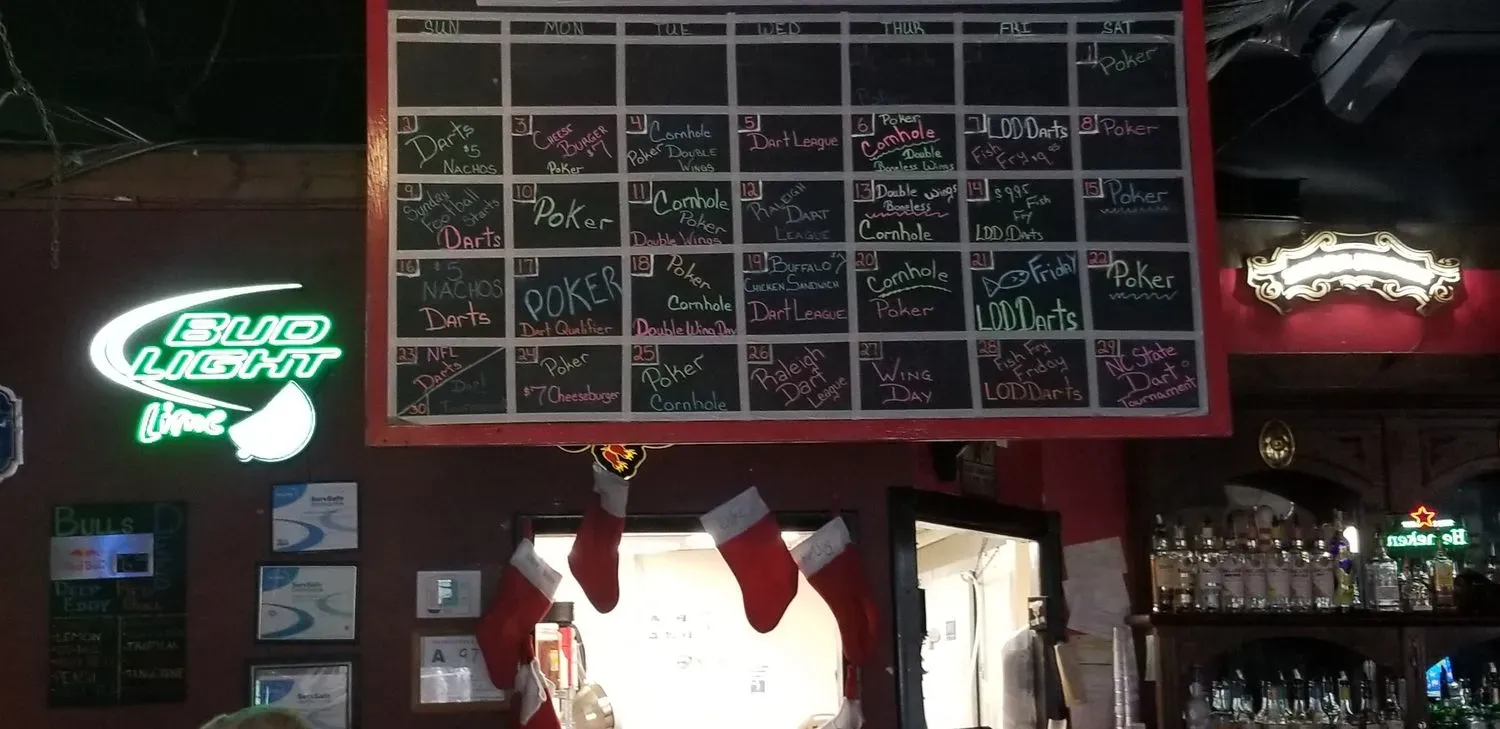 SUN MON TUE WED THUR FRI SAT
1 Poker
2 Darts
$5
NACHOS
3 CHEESE
BURGER
$7
Poker
4 Cornhole
Poker DOUBLE
WINGS
5
Dart League
6 Poker
Cornhole
Double
Boneless Wings
7 LOD Darts
Fish
Fry
8 Poker
9 Sunday
Football
Starts
Darts
10
Poker
11 Cornhole
Poker
Double Wings
12 RALEIGH
DART
LEAGUE
13 Double wings
Boneless
Cornhole
14 $9.95 Fish
Fry
LOD Darts
15 Poker
16 $5
NACHOS
Darts
17
POKER
Dart Qualifier
18 Poker
Cornhole
Double Wing Day
19 BUFFALO $7
CHICKEN SANDWICH
Dart League
20 Cornhole
Poker
21 Friday
LOD Darts
22 Poker
23 NFL
Darts
30 Dart
Tournament
24 Poker
$7 Cheeseburger
25 Poker
Cornhole
26 Raleigh
Dart
League
27 WING
DAY
28 Fish Fry
Friday
LOD Darts
29 NC State
Dart
Tournament
BUD
LIGHT
Lime
BULLS
DEEP
EDDY
LEMON
PEACH
TANGERINE
ServSafe
ServSafe
ServSafe
A 97
Heineken